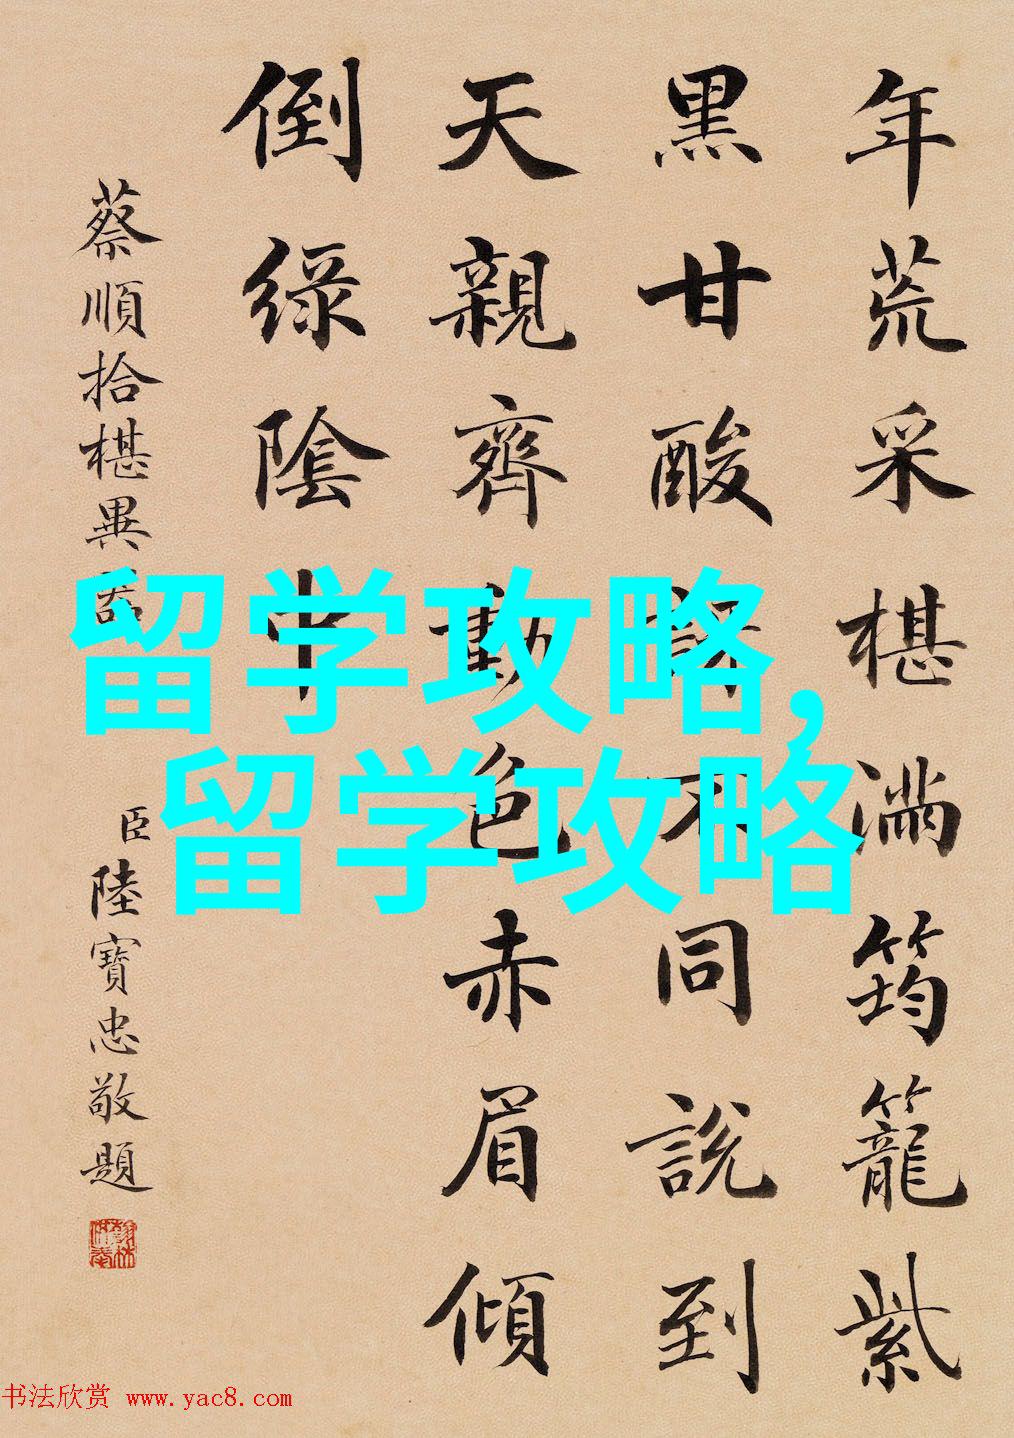 年荒采椹滿筠籠紫
黑甘酸不同說到
天親齊動色赤眉傾
倒綠陰中
蔡順拾椹異器
臣陸寶忠敬題
留学攻略,
留学攻略
书法欣赏 www.yac8.com